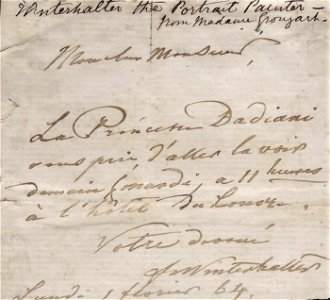 Winterhalter the Portrait Painter -
from Madame
Mon cher Monsieur,
La Princesse Dadiani
vous prie d'aller la voir
demain (mardi, a 11 heures
à l'hôtel du Louvre.
Votre devoué
Winterhalter
Lundi 1 fevrier 64.